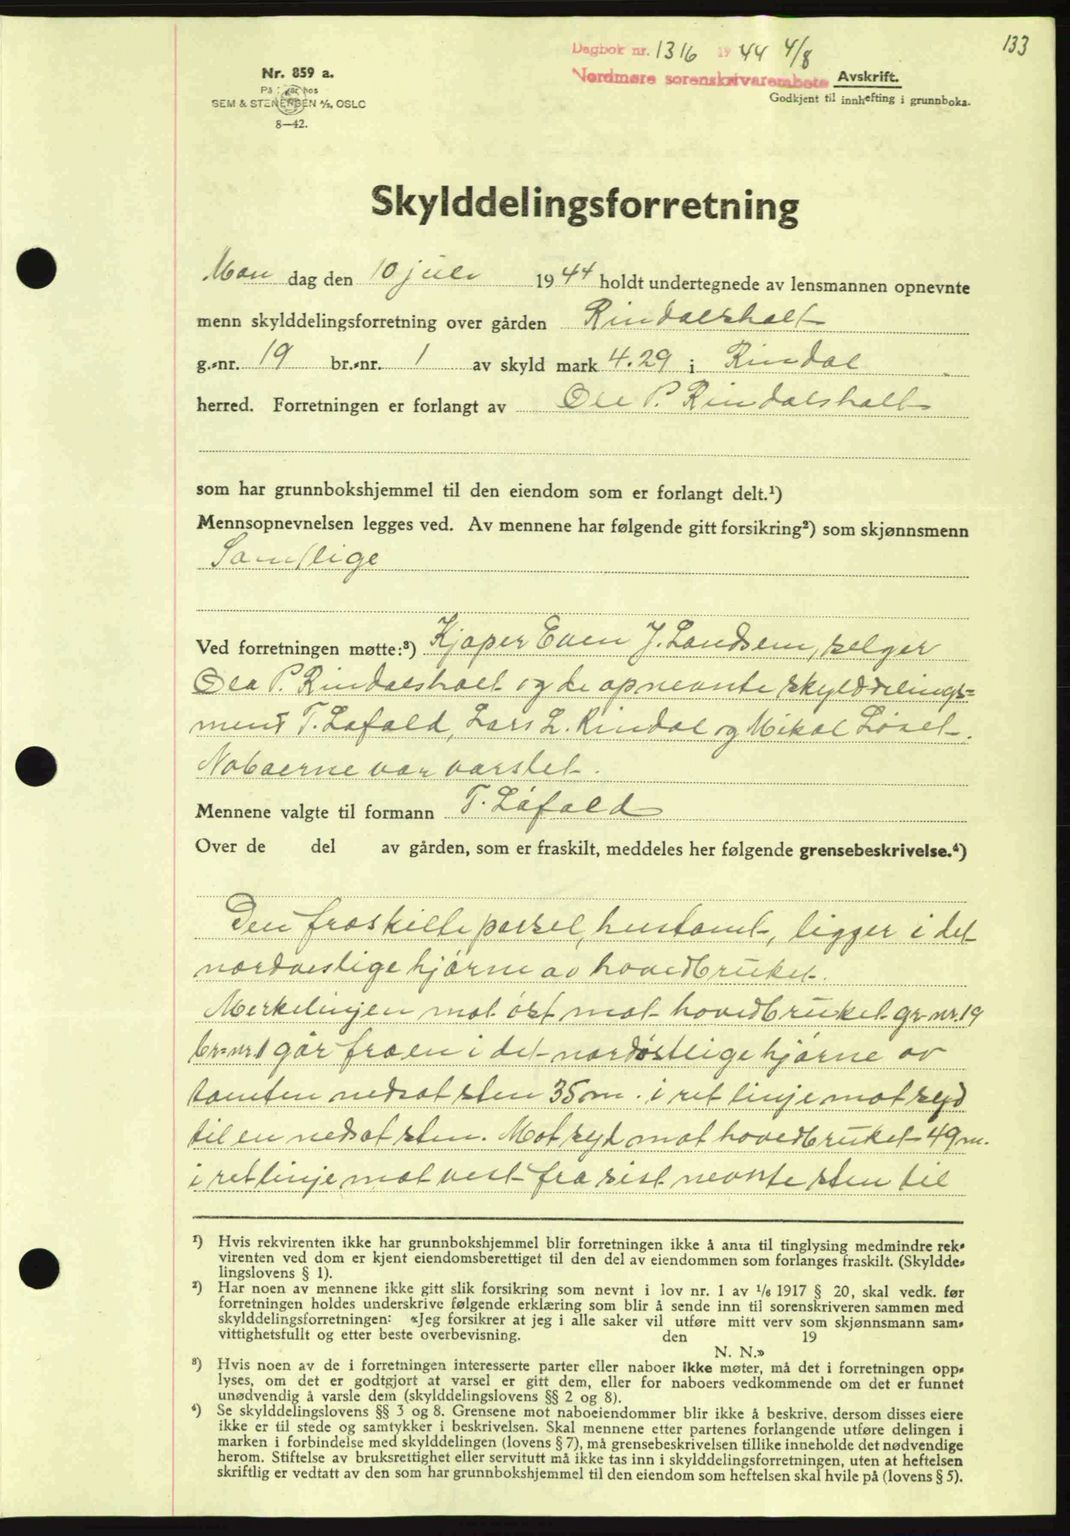 133
Dagbok nr. 1316 1944 4/8
Nordmøre sorenskriverembete
Avskrift.
Godkjent til innhefting i grunnboka.
Nr. 859 a.
På hos
SEM & STENERSEN A/S, OSLO
8—42.
Skylddelingsforretning
Man dag den 10 juli 1944 holdt undertegnede av lensmannen opnevnte
menn skylddelingsforretning over gården Rindalsholt
g.-nr. 19 br.-nr. 1 av skyld mark 4.29 i Rindal
herred. Forretningen er forlangt av Ole P. Rindalsholt
som har grunnbokshjemmel til den eiendom som er forlangt delt.¹)
Mennsopnevnelsen legges ved. Av mennene har følgende gitt forsikring²) som skjønnsmenn
Samtlige
Ved forretningen møtte:³) Kjøper Even J. Landsem, selger
Ola P. Rindalsholt og de opnevnte skylddelings-
menn T. Løfald, Lars L. Rindal og Mikal Løset.
Naboerne var varslet.
Mennene valgte til formann T. Løfald
Over de del av gården, som er fraskilt, meddeles her følgende grensebeskrivelse.⁴)
Den fraskilte parsel, hustomt, ligger i det
nordvestlige hjørne av hovedbruket.
Merkelinjen mot øst mot hovedbruket gr-nr. 19
br-nr 1 går fra en i det nordøstlige hjørne av
tomten nedsat sten 35 m. i ret linje mot syd
til en nedsat sten. Mot syd mot hovedbruket 49 m.
i ret linje mot vest fra sist nevnte sten til
¹) Hvis rekvirenten ikke har grunnbokshjemmel blir forretningen ikke å anta til tinglysing medmindre rek-
virenten ved dom er kjent eiendomsberettiget til den del av eiendommen som forlanges fraskilt. (Skyldde-
lingslovens § 1).
²) Har noen av mennene ikke gitt slik forsikring som nevnt i lov nr. 1 av 1/6 1917 § 20, skal vedk. før
forretningen holdes underskrive følgende erklæring som blir å sende inn til sorenskriveren sammen med
skylddelingsforretningen: «Jeg forsikrer at jeg i alle saker vil utføre mitt verv som skjønnsmann sam-
vittighetsfullt og etter beste overbevisning. den 19
N. N.»
³) Hvis noen av de i forretningen interesserte parter eller naboer ikke møter, må det i forretningen opp-
lyses, om det er godtgjort at varsel er gitt dem, eller for naboers vedkommende om det er funnet
unødvendig å varsle dem (skylddelingslovens §§ 2 og 8).
⁴) Se skylddelingslovens §§ 3 og 8. Grensene mot naboeiendommer blir ikke å beskrive, dersom disses eiere
ikke er til stede og samtykker i beskrivelsen. Skal mennene etter partenes forlangende utføre delingen i
marken i forbindelse med skylddelingen (lovens § 7), må grensebeskrivelsen tillike inneholde det nødvendige
herom. Stiftelse av bruksrettighet eller servitutt må ikke tas inn i skylddelingsforretningen, uten at heftelsen
skriftlig er vedtatt av den som har grunnbokshjemmel til den eiendom som heftelsen skal hvile på (lovens § 5).